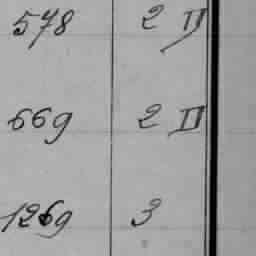 578 2 II
669 2 II
1269 3